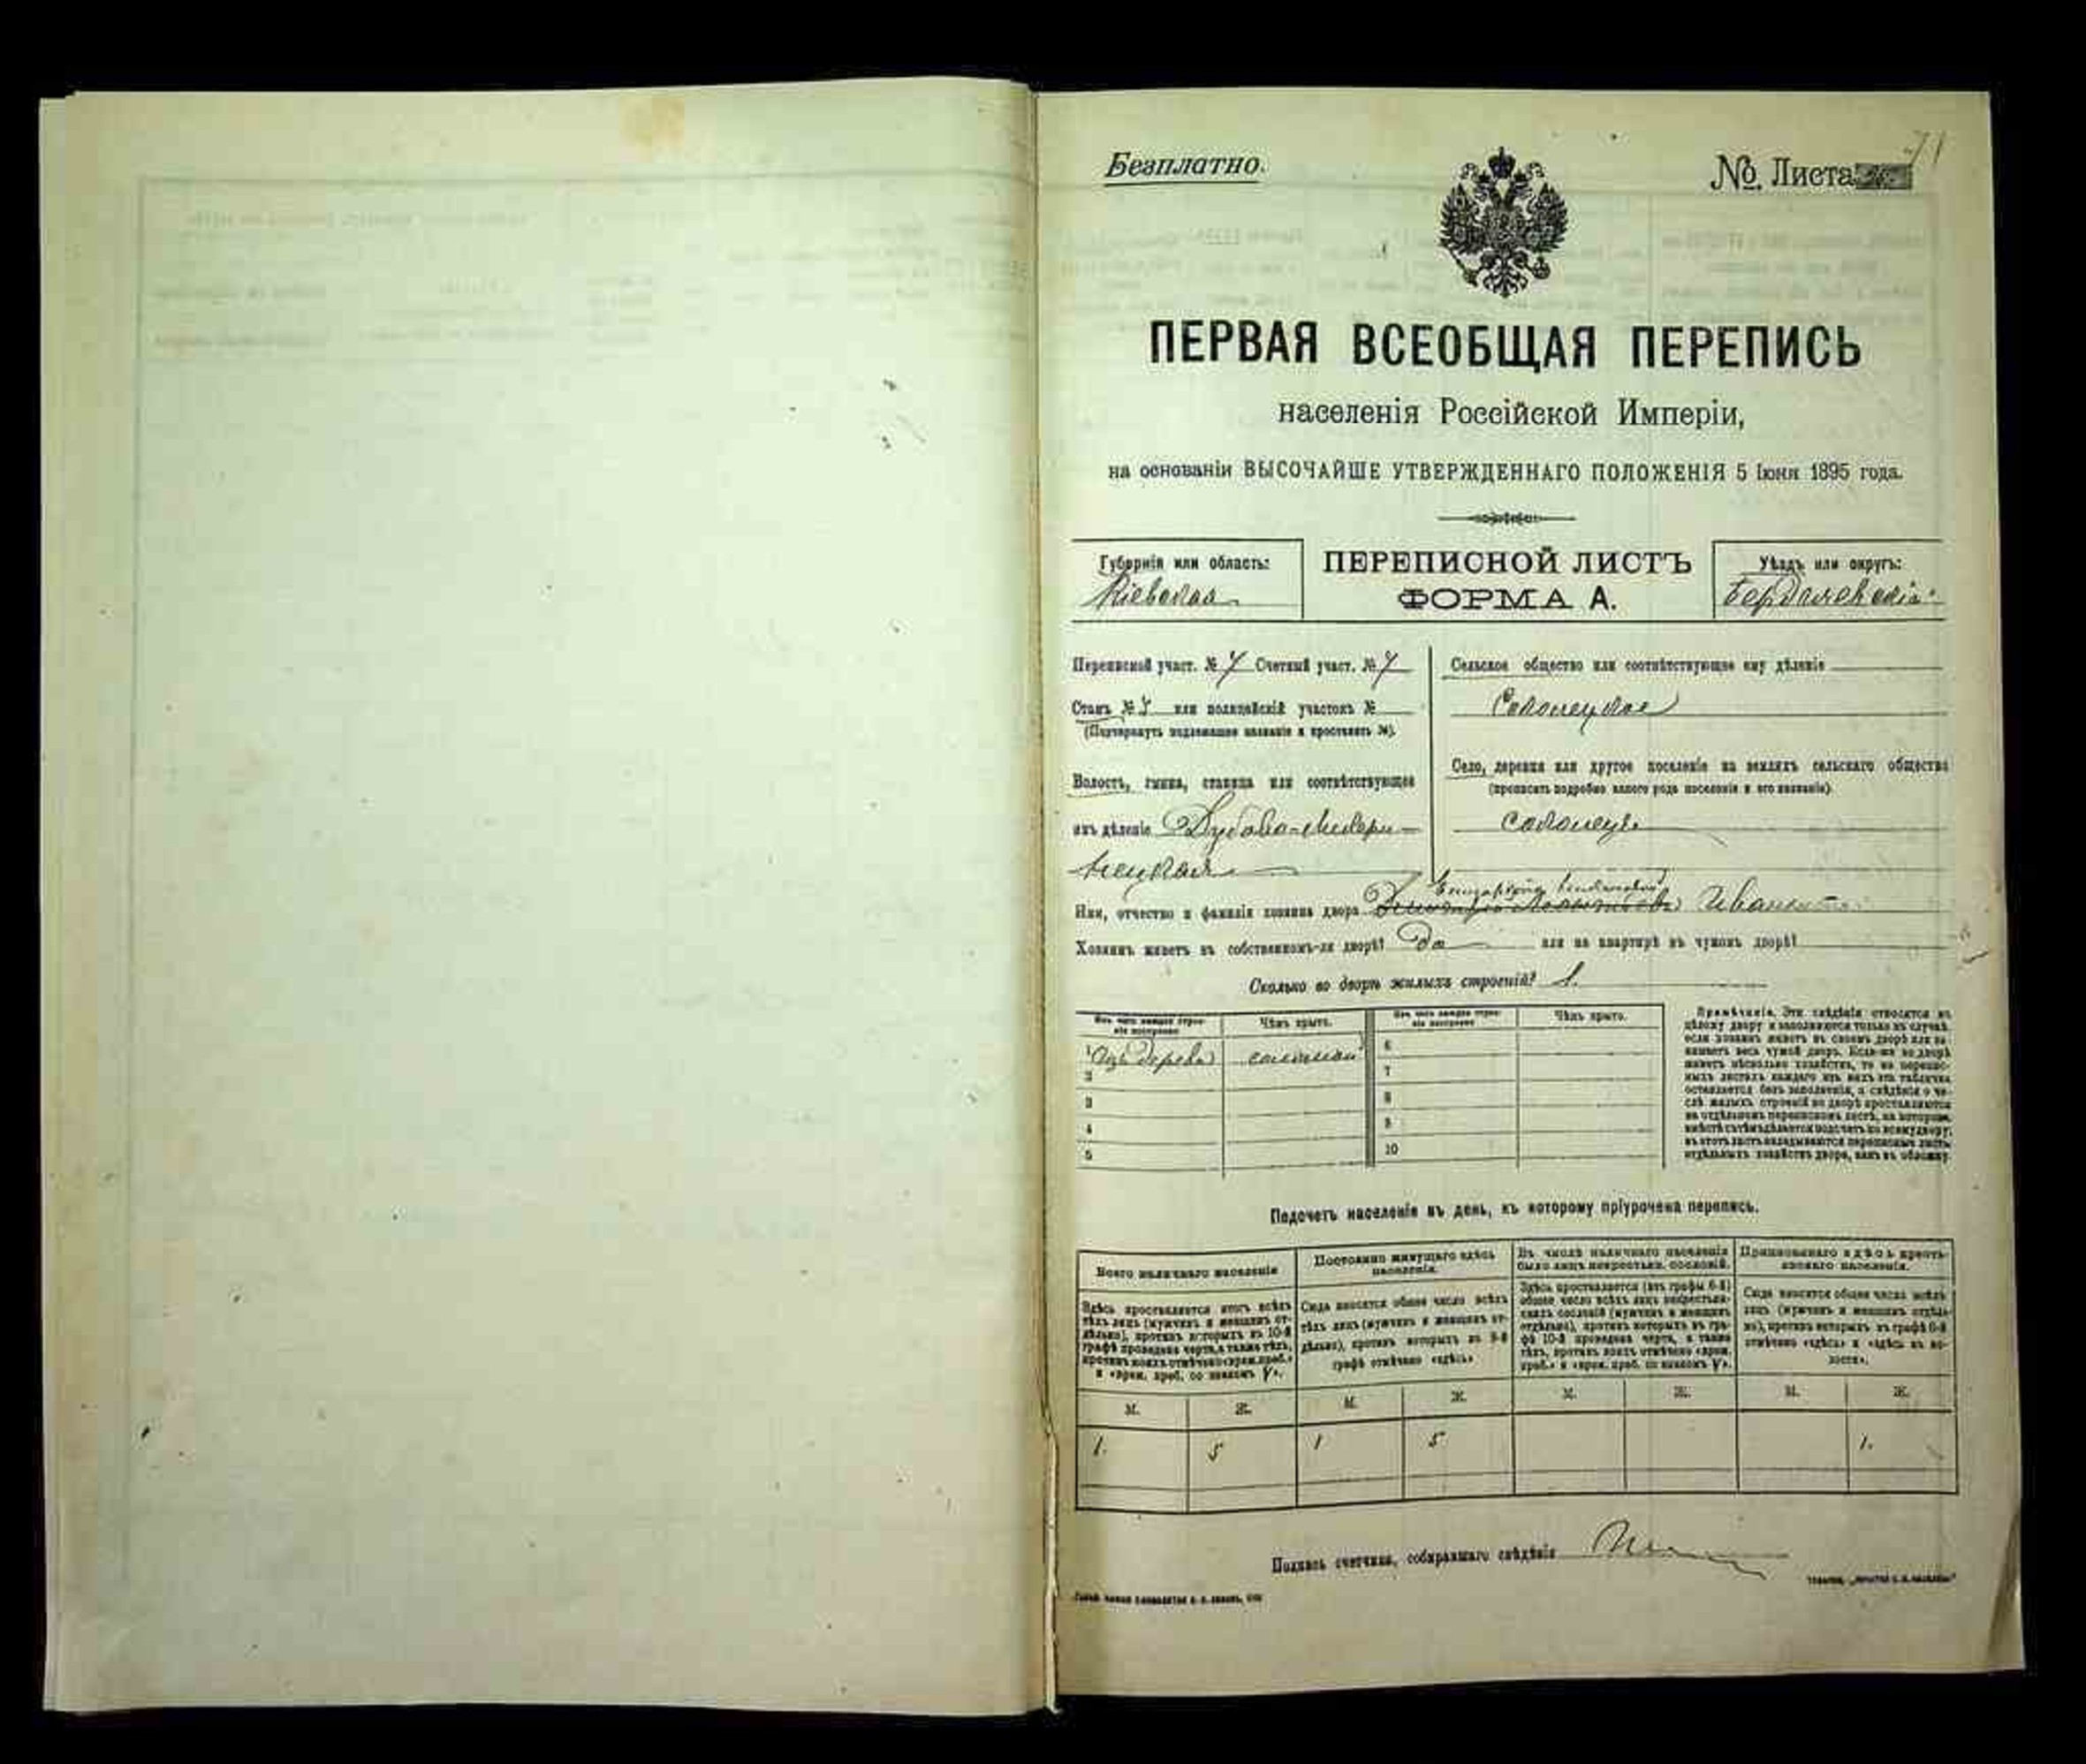 71
Безплатно.
№. Листа
ПЕРВАЯ ВСЕОБЩАЯ ПЕРЕПИСЬ
населенія Россійской Имперіи,
на основаніи ВЫСОЧАЙШЕ УТВЕРЖДЕННАГО ПОЛОЖЕНІЯ 5 Іюня 1895 года.
Губернія или область:
Кіевская
ПЕРЕПИСНОЙ ЛИСТЪ
ФОРМА А.
Уѣздъ или округъ:
Бердичевскій
Переписной участ. № 7 Счетный участ. № 7
Станъ № или полицейскій участокъ №
(Подчеркнуть подлежащее названіе и проставить №).
Волость, гмина, станица или соотвѣтствующее
имъ дѣленіе
Сельское общество или соотвѣтствующее ему дѣленіе
Село, деревня или другое поселеніе на земляхъ сельскаго общества
(прописать подробно какого рода поселеніе и его названіе).
Имя, отчество и фамилія хозяина двора
Хозяинъ живетъ въ собственномъ-ли дворѣ? да или на квартирѣ въ чужомъ дворѣ?
Сколько во дворѣ жилыхъ строеній? 1.
Изъ чего каждое строе-
ніе построено
Чѣмъ крыто.
Изъ чего каждое строе-
ніе построено
Чѣмъ крыто.
1 Изъ дерева соломою 6
2 7
3 8
4 9
5 10
Примѣчаніе. Эти свѣдѣнія относятся къ
цѣлому двору и заполняются только въ случаѣ,
если хозяинъ живетъ въ своемъ дворѣ или за-
нимаетъ весь чужой дворъ. Если-же во дворѣ
живетъ нѣсколько хозяйствъ, то на перепис-
ныхъ листахъ каждаго изъ нихъ эта табличка
оставляется безъ заполненія, а свѣдѣнія о чи-
слѣ жилыхъ строеній во дворѣ проставляются
на отдѣльномъ переписномъ листѣ, на которомъ
вмѣстѣ съ тѣмъ дѣлается подсчетъ по всему двору;
въ этотъ листъ вкладываются переписные листы
отдѣльныхъ хозяйствъ двора, какъ въ обложку.
Подсчетъ населенія въ день, къ которому пріурочена перепись.
Всего наличнаго населенія
Здѣсь проставляется итогъ всѣхъ
тѣхъ лицъ (мужчинъ и женщинъ от-
дѣльно), противъ которыхъ въ 10-й
графѣ проведена черта, а также тѣхъ,
противъ коихъ отмѣчено «врем. преб.»
и «врем. преб. со знакомъ V».
Постоянно живущаго здѣсь
населенія.
Сюда вносится общее число всѣхъ
тѣхъ лицъ (мужчинъ и женщинъ от-
дѣльно), противъ которыхъ въ 9-й
графѣ отмѣчено «здѣсь»
Въ числѣ наличнаго населенія
было лицъ некрестьян. сословій.
Здѣсь проставляется (изъ графы 6-й)
общее число всѣхъ лицъ некрестьян-
скихъ сословій (мужчинъ и женщинъ
отдѣльно), противъ которыхъ въ гра-
фѣ 10-й проведена черта, а также
тѣхъ, противъ коихъ отмѣчено «врем.
преб.» и «врем. преб. со знакомъ V».
Приписаннаго здѣсь кресть-
янскаго населенія.
Сюда вносится общее число всѣхъ
лицъ (мужчинъ и женщинъ отдѣль-
но), противъ которыхъ въ графѣ 8-й
отмѣчено «здѣсь» и «здѣсь въ во-
лости».
М. Ж. М. Ж. М. Ж. М. Ж.
1. 5 1 5 1.
Подпись счетчика, собиравшаго свѣдѣнія